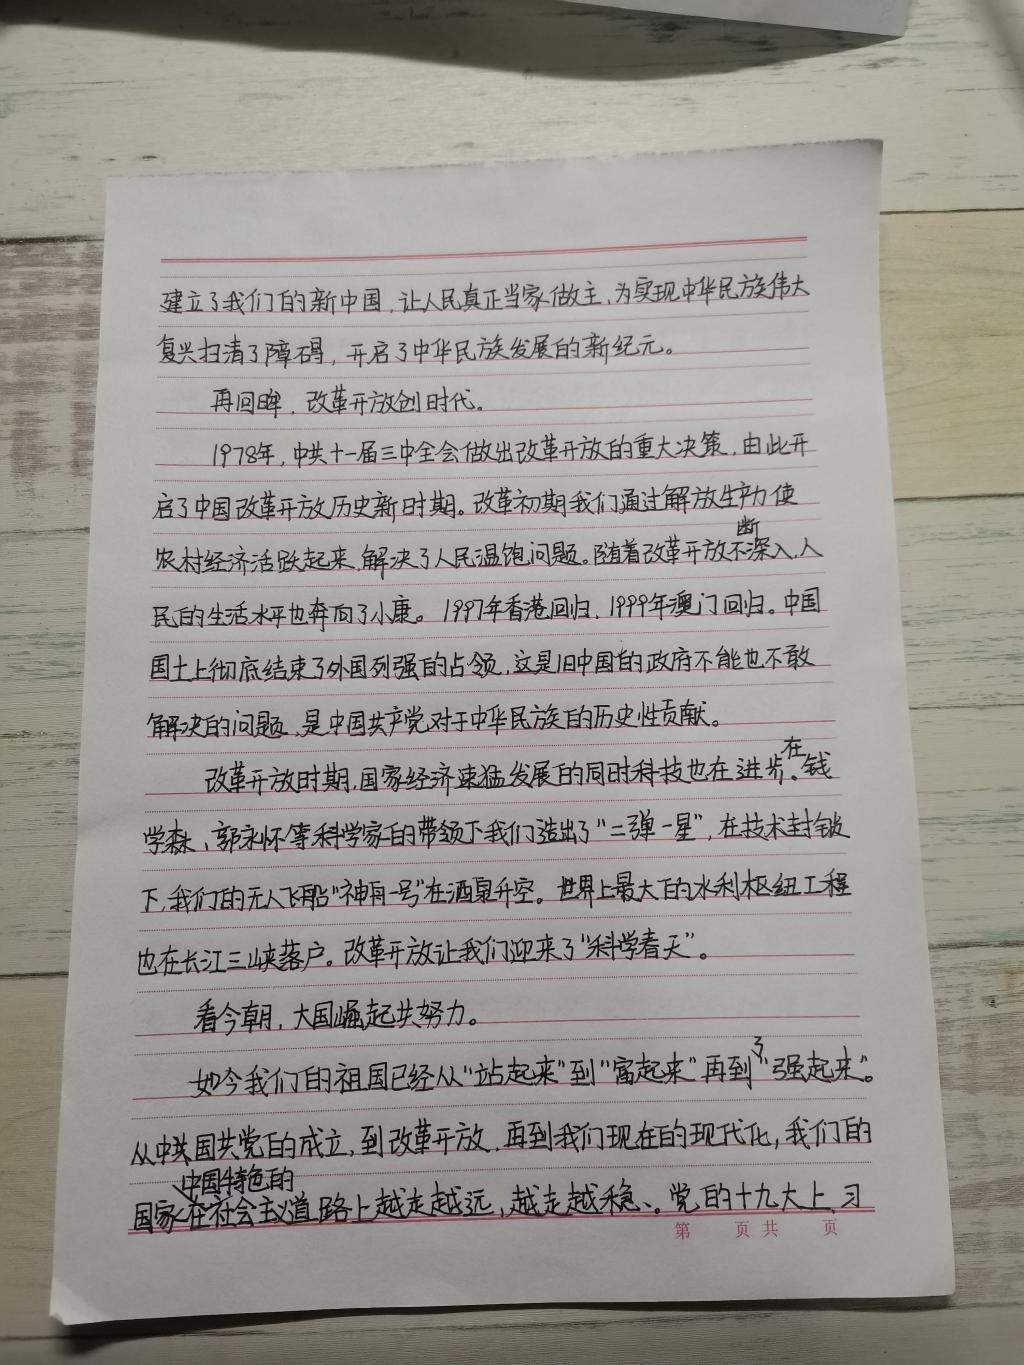 建立了我们的新中国，让人民真正当家做主，为实现中华民族伟大
复兴扫清了障碍，开启了中华民族发展的新纪元。
再回眸，改革开放创时代。
1978年，中共十一届三中全会做出改革开放的重大决策，由此开
启了中国改革开放历史新时期。改革初期我们通过解放生产力使
断
农村经济活跃起来，解决了人民温饱问题。随着改革开放不深入，人
民的生活水平也奔向了小康。1997年香港回归，1999年澳门回归。中国
国土上彻底结束了外国列强的占领，这是旧中国的政府不能也不敢
解决的问题，是中国共产党对于中华民族的历史性贡献。
在
改革开放时期，国家经济速猛发展的同时科技也在进步。钱
学森、郭永怀等科学家的带领下我们造出了“二弹一星”，在技术封锁
下，我们的无人飞船“神舟一号”在酒泉升空。世界上最大的水利枢纽工程
也在长江三峡落户。改革开放让我们迎来了“科学春天”。
看今朝，大国崛起共努力。
了
如今我们的祖国已经从“站起来”到“富起来”再到“强起来”。
从中国共党的成立，到改革开放，再到我们现在的现代化，我们的
中国特色的
国家在社会主义道路上越走越远，越走越稳、。党的十九大上，习
第 页 共 页